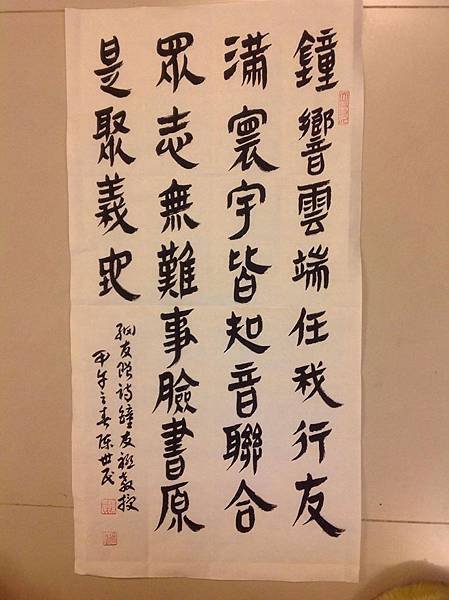 鐘響雲端任我行友
滿寰宇皆知音聯合
眾志無難事臉書原
是聚義
網友詩鐘友聯教授
甲午之春陳世民